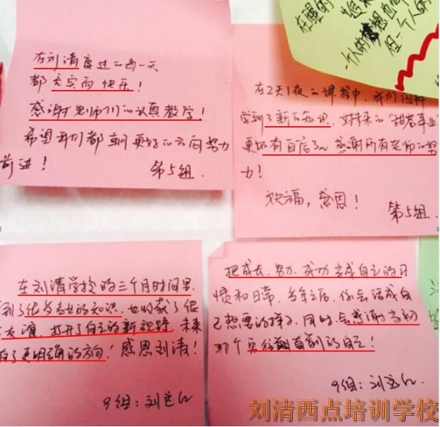 在刘清度过二天一天
都充实而快乐!
感谢老师们的认真教学!
希望我们都朝更好的方向努力
前进!
第5组.
在2天1夜的课程中,我们
学到了新的知识,对未来的
更加有自信了,感谢所有老师的努
力!
祝福,感恩!
第5组.
在刘清学校的三个月时间里
到了很多专业的知识,也收获了很
打开了自己的新视野 未来
有了更明确的方向,感恩刘清!
9组:刘
把成长、努力、成功当成自己的习
惯和日常,多年之后,你会活成自
己想要的样子,同时会感谢当初
那个勇往直前的自己!
9组:刘
刘清西点培训学校